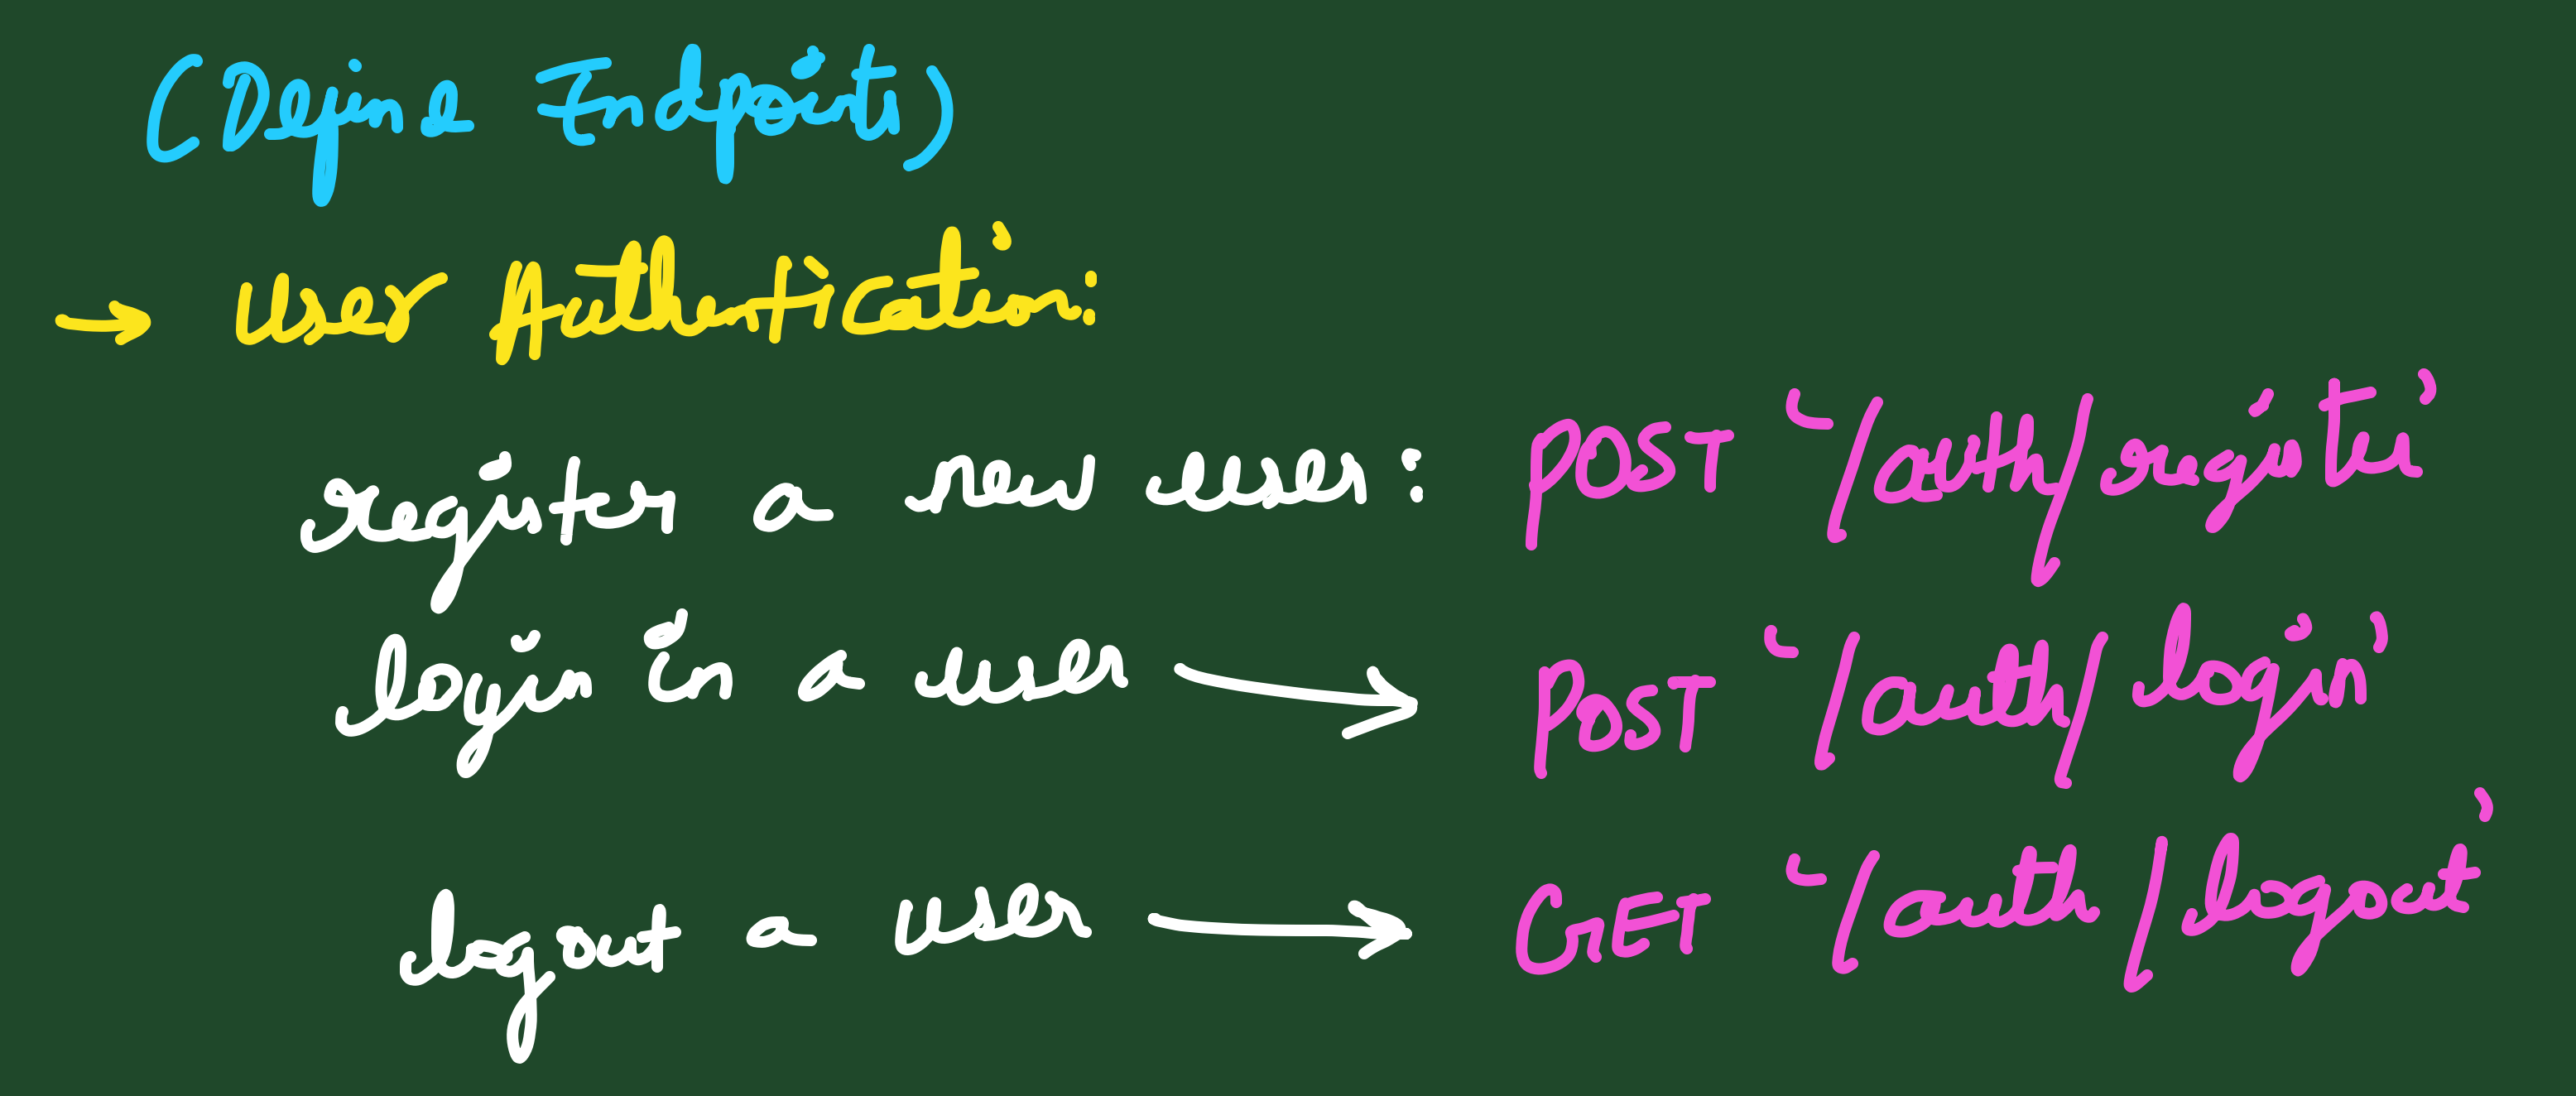 (Define Endpoints)
→ User Authentication:
register a new user: POST '/auth/register'
login in a user → POST '/auth/login'
logout a user → GET '/auth/logout'